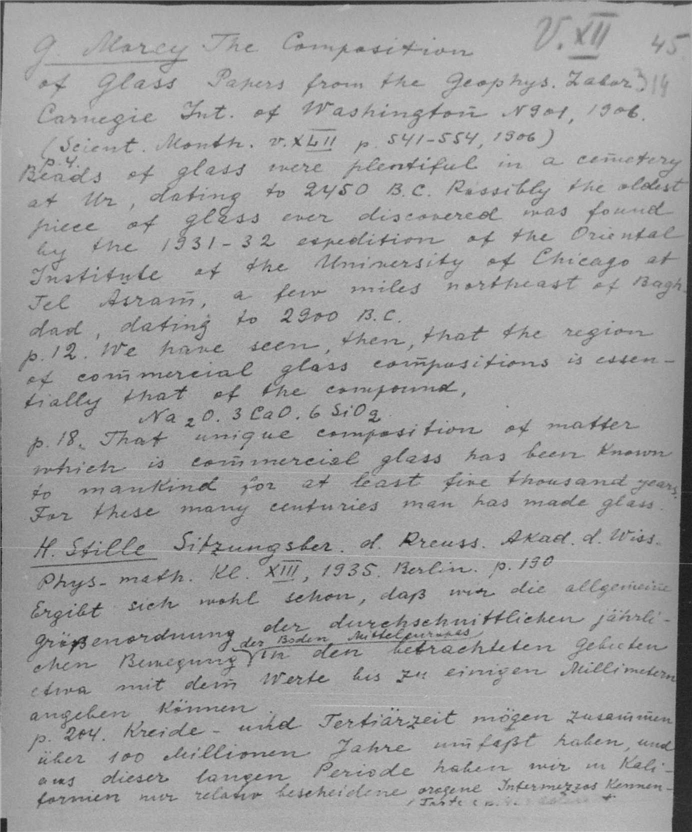 V. XII 45
G. Morey The Composition
of Glass Papers from the Geophys. Labor.
Carnegie Int. of Washington N901, 1906.
(Scient. Month. v. XLII p. 541-554, 1906)
p. 4.
Beads of glass were plentiful in a cemetery
at Ur, dating to 2450 B.C. Possibly the oldest
piece of glass ever discovered was found
by the 1931-32 expedition of the Oriental
Institute of the University of Chicago at
Tel Asram, a few miles northeast of Bagh-
dad, dating to 2900 B.C.
p. 12. We have seen, then, that the region
of commercial glass compositions is essen-
tially that of the compound,
Na2O. 3 CaO. 6 SiO2
p. 18. That unique composition of matter
which is commercial glass has been known
to mankind for at least five thousand years.
For these many centuries man has made glass.
H. Stille Sitzungsber. d. Preuss. Akad. d. Wiss.
Phys-math. Kl. XIII, 1935. Berlin. p. 190
Ergibt sich wohl schon, daß wir die allgemeine
Größenordnung der durchschnittlichen jährli-
der Boden Mitteleuropas
chen Bewegung in den betrachteten Gebieten
etwa mit dem Werte bis zu einigen Millimetern
angeben können.
p. 204. Kreide- und Tertiärzeit mögen zusammen
über 100 Millionen Jahre umfaßt haben, und
aus dieser langen Periode haben wir in Kali-
fornien nur relativ bescheidene orogene Intermezzos kennen-